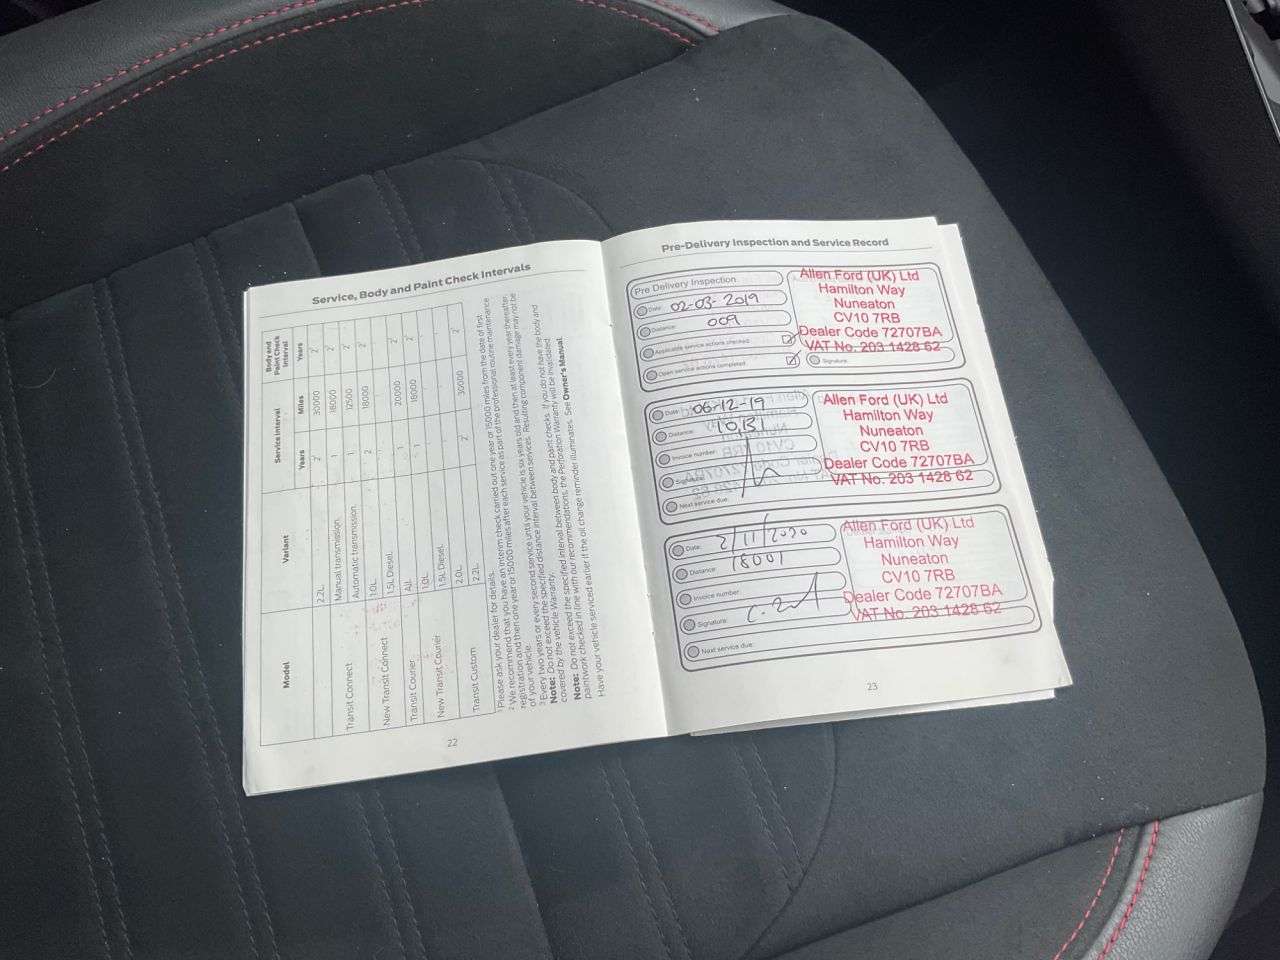 Service, Body and Paint Check Intervals
Model
Variant
Service Interval
Body and Paint Check Interval
Years
Miles
Years
2.2L
2
30000
2
Transit Connect
Manual transmission.
1
18000
2
Automatic transmission.
1
12500
2
New Transit Connect
1.0L
2
18000
2
1.5L Diesel.
Transit Courier
All.
1
20000
2
New Transit Courier
1.0L
1
18000
2
1.5L Diesel.
Transit Custom
2.0L
2
30000
2
2.2L
¹ Please ask your dealer for details.
² We recommend that you have an interim check carried out one year or 15000 miles from the date of first
registration and then one year or 15000 miles after each service as part of the professional routine maintenance
of your vehicle.
³ Every two years or every second service until your vehicle is six years old and then at least every year thereafter.
Note: Do not exceed the specified distance interval between services. Resulting component damage may not be
covered by the vehicle Warranty.
Note: Do not exceed the specified interval between body and paint checks. If you do not have the body and
paintwork checked in line with our recommendations, the Perforation Warranty will be invalidated.
Have your vehicle serviced earlier if the oil change reminder illuminates. See Owner's Manual.
22
Pre-Delivery Inspection and Service Record
Pre Delivery Inspection
Date: 02-03-2019
Distance: 009
Applicable service actions checked
Open service actions completed
Allen Ford (UK) Ltd
Hamilton Way
Nuneaton
CV10 7RB
Dealer Code 72707BA
VAT No. 203 1428 62
Signature:
Date: 06-12-19
Distance: 10,131
Invoice number:
Signature:
Next service due:
Allen Ford (UK) Ltd
Hamilton Way
Nuneaton
CV10 7RB
Dealer Code 72707BA
VAT No. 203 1428 62
Date: 2/11/2020
Distance: 18001
Invoice number:
Signature:
Next service due:
Allen Ford (UK) Ltd
Hamilton Way
Nuneaton
CV10 7RB
Dealer Code 72707BA
VAT No. 203 1428 62
23